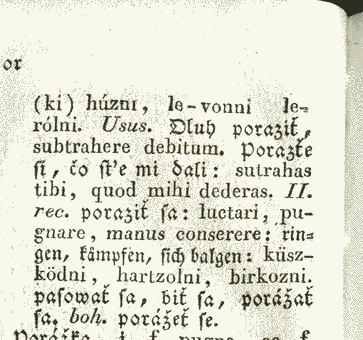 or
(ki) húzni, le-vonni le-
rólni. Usus. Dluh poraziť,
subtrahere debitum. Porazťe
si, čo sťe mi ďali: sutrahas
tibi, quod mihi dederas. II.
rec. poraziť sa: luctari, pu-
gnare, manus conserere: rin-
gen, kämpfen, sich balgen: küsz-
ködni, hartzolni, birkozni.
pasowať sa, biť sa, porážať
sa. boh. porážeť se.